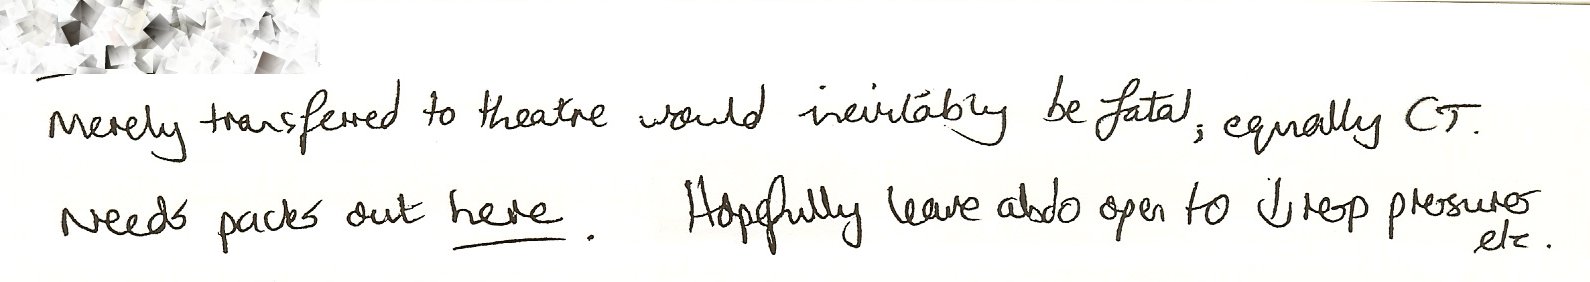 Merely transferred to theatre would inevitably be fatal, equally CT.
Needs packs out here. Hopefully leave abdo open to ↓ resp pressures
etc.